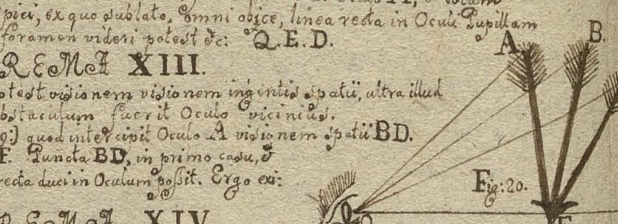 spici, ex quo sublato, omni obice, linea recta in Oculi Pupillam
foramen videri potest &c: Q.E.D.
REMA XIII.
otest visionem visionem ingentis spatii, ultra illud
bstaculum fuerit Oculo vicinius.
9:) quod intercipit Oculo A visionem spatii BD.
F. Puncta BD, in primo casu, &
recta duci in Oculum possit. Ergo exi:
REMA XIV.
A
B.
Fig: 20.